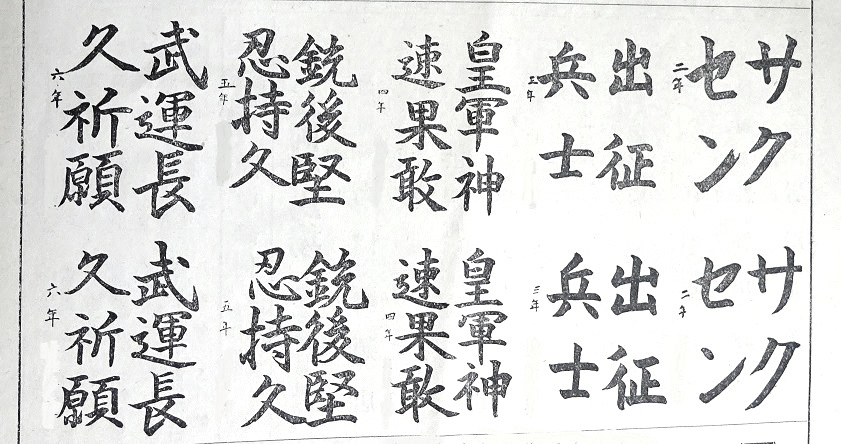 サク
セン
二年
出征
兵士
三年
皇軍神
速果敢
四年
銃後堅
忍持久
五年
武運長
久祈願
六年
サク
セン
二年
出征
兵士
三年
皇軍神
速果敢
四年
銃後堅
忍持久
五年
武運長
久祈願
六年